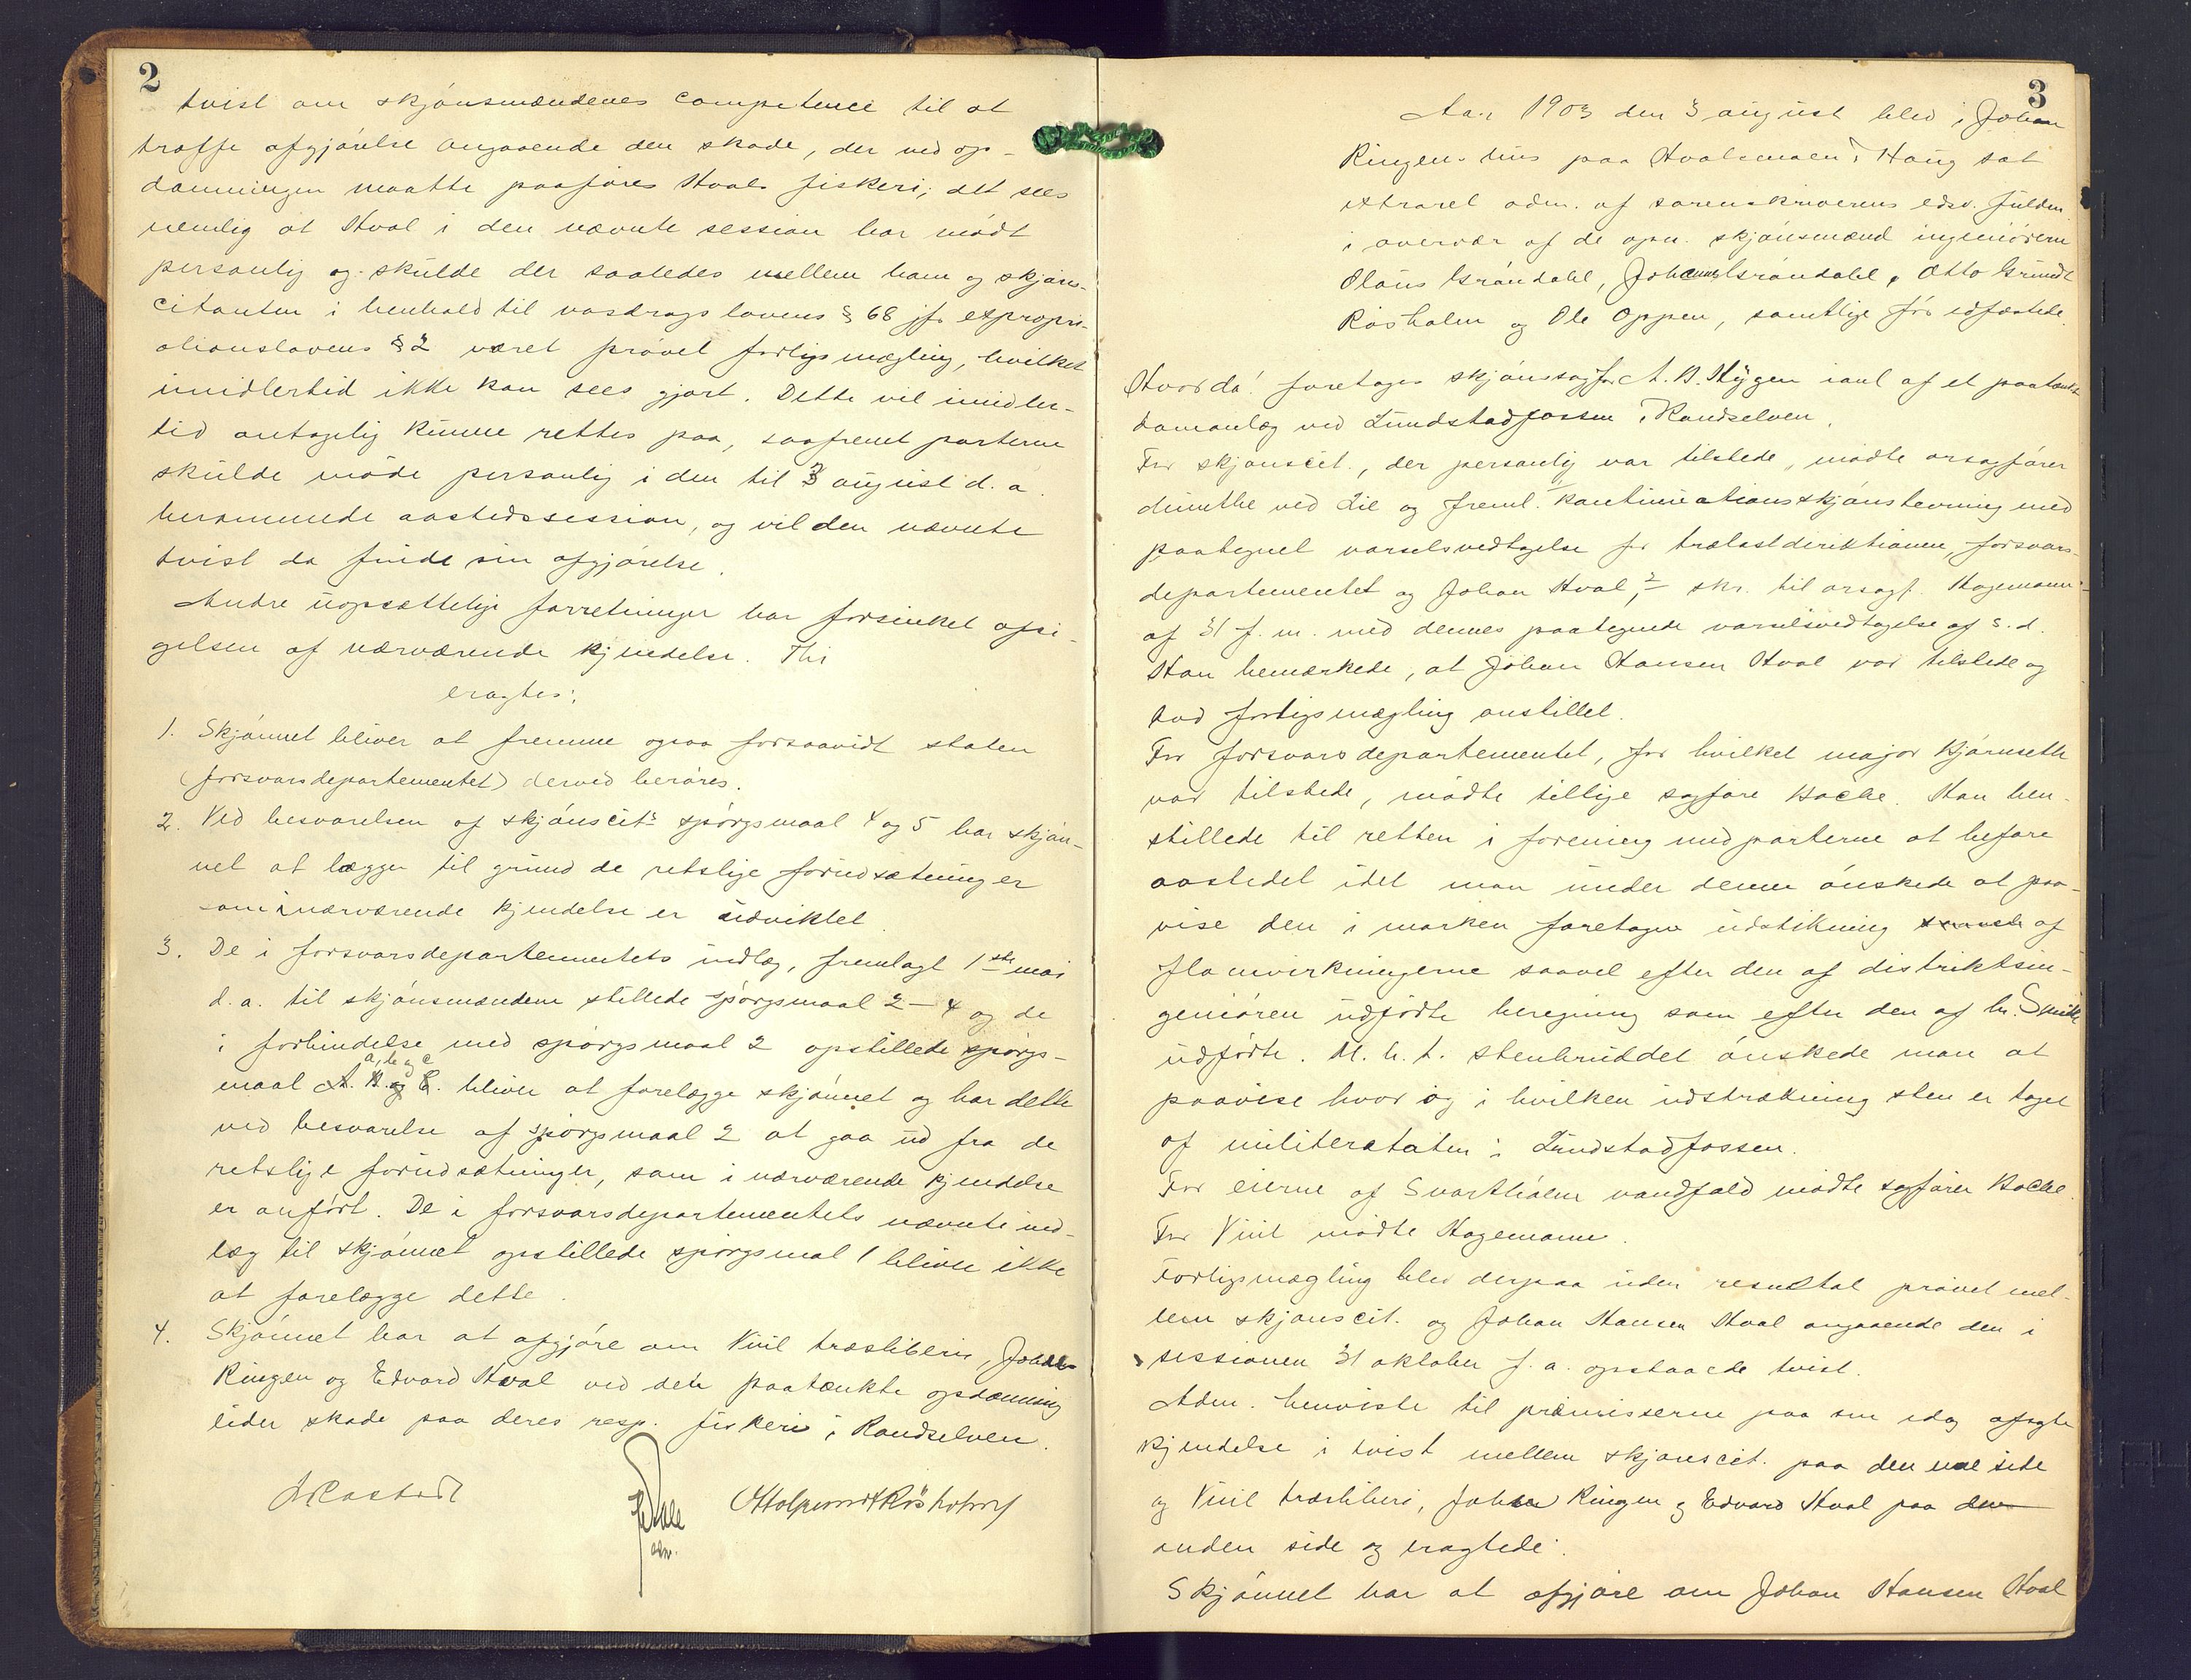 2
tvist om skjønsmændenes competence til at
træffe afgjørelse angaaende den skade, der ved op-
dæmningen maatte paaføres Hvals fiskeri; det sees
nemlig at Hval i den nævnte session har mødt
personlig og skulde der saaledes mellem ham og skjøns-
citanten i henhold til vasdragslovens § 68 jfr expropri-
ationslovens § 2 været prøvet forligsmægling, hvilket
imidlertid ikke kan sees gjort. Dette vil imidler-
tid antagelig kunne rettes paa, saafremt parterne
skulde møde personlig i den til 3 august d. a.
berammede aastedssession, og vil den nævnte
tvist da finde sin afgjørelse.
Andre uopsættelige forretninger har forsinket afsi-
gelsen af nærværende kjendelse. Thi
eragtes:
1. Skjønnet bliver at fremme ogsaa forsaavidt staten
(forsvarsdepartementet) derved berøres.
2. Ved besvarelsen af skjønscits spørgsmaal 4 og 5 har skjøn-
net at lægge til grund de retslige forudsætninger
som i nærværende kjendelse er udviklet.
3. De i forsvarsdepartementets indlæg, fremlagt 1ste mai
d. a. til skjønsmændene stillede spørgsmaal 2-4 og de
i forbindelse med spørgsmaal 2 opstillede spørgs-
a, b og c
maal A. B. og C. bliver at forelægge skjønnet og har dette
ved besvarelse af spørgsmaal 2 at gaa ud fra de
retslige forudsætninger, som i nærværende kjendelse
er anført. De i forsvarsdepartementets nævnte ind-
læg til skjønnet opstillede spørgsmal 1 bliver ikke
at forelægge dette.
4. Skjønnet har at afgjøre om Viul træsliberi, Johan
Ringen og Edvard Hval ved den paatænkte opdæmning
lider skade paa deres resp. fiskeri i Randselven.
adm.
3
Aar 1903 den 3 august blev i Johan
Ringens hus paa Hvalsmoen i Haug sat
extraret adm. af sorenskriverens edsv. fuldm.
i overvær af de opn. skjønsmænd ingeniørerne
Olaus Grøndahl, Johannes Grøndahl, Otto Grundt
Rosholm og Ole Oppen, samtlige før edfæstede.
Hvorda! foretoges skjønssag for A. B. Hygen i anl. af et paatænkt
damanlæg ved Lundstadfossen i Randselven.
For skjønscit., der personlig var tilstede, mødte orsagfører
ved Lie og freml. 1 kontinuationsskjønstevning med
paategnet varselsvedtagelse for trælastdirektionen, forsvars-
departementet og Johan Hval, 2 skr. til orsagf. Hagemann
af 31 f. m. med dennes paategnede varselsvedtagelse af s. d.
Han bemærkede, at Johan Hansen Hval var tilstede og
bad forligsmægling anstillet.
For forsvarsdepartementet, for hvilket major Kjørnseth
var tilstede, mødte tillige sagfører Bache. Han hen-
stillede til retten i forening med parterne at befare
aastedet idet man under denne ønskede at paa-
vise den i marken foretagne udstikning af
flomvirkningerne saavel efter den af distriktsin-
geniøren udførte beregning som efter den af hr. Smith
udførte. M. h. t. stenbruddet ønskede man at
paavise hvor og i hvilken udstrækning sten er taget
af militæretaten i Lundstadfossen.
For eierne af Svartholm vandfald mødte sagfører Bache.
For Viul mødte Hagemann.
Forligsmægling blev derpaa uden resultat prøvet mel-
lem skjønscit. og Johan Hansen Hval angaaende den i
sessionen 31 oktober f. a. opstaaede tvist.
Adm. henviste til præmisserne paa en idag afsagte
kjendelse i tvist mellem skjønscit. paa den ene side
og Viul træsliberi, Johan Ringen og Edvard Hval paa den
anden side og eragtede:
Skjønnet har at afgjøre om Johan Hansen Hval